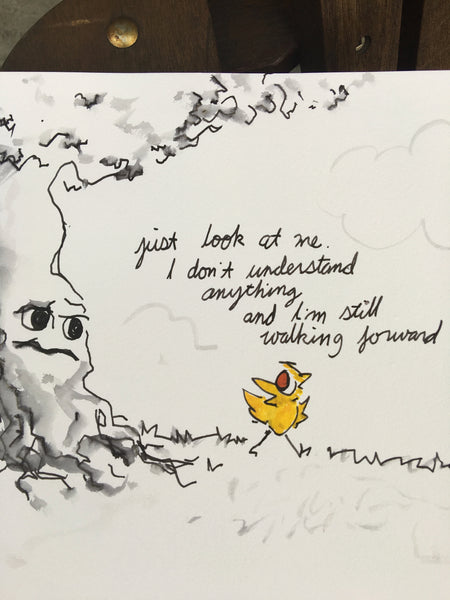 just look at me.
I don't understand
anything
and I'm still
walking forward